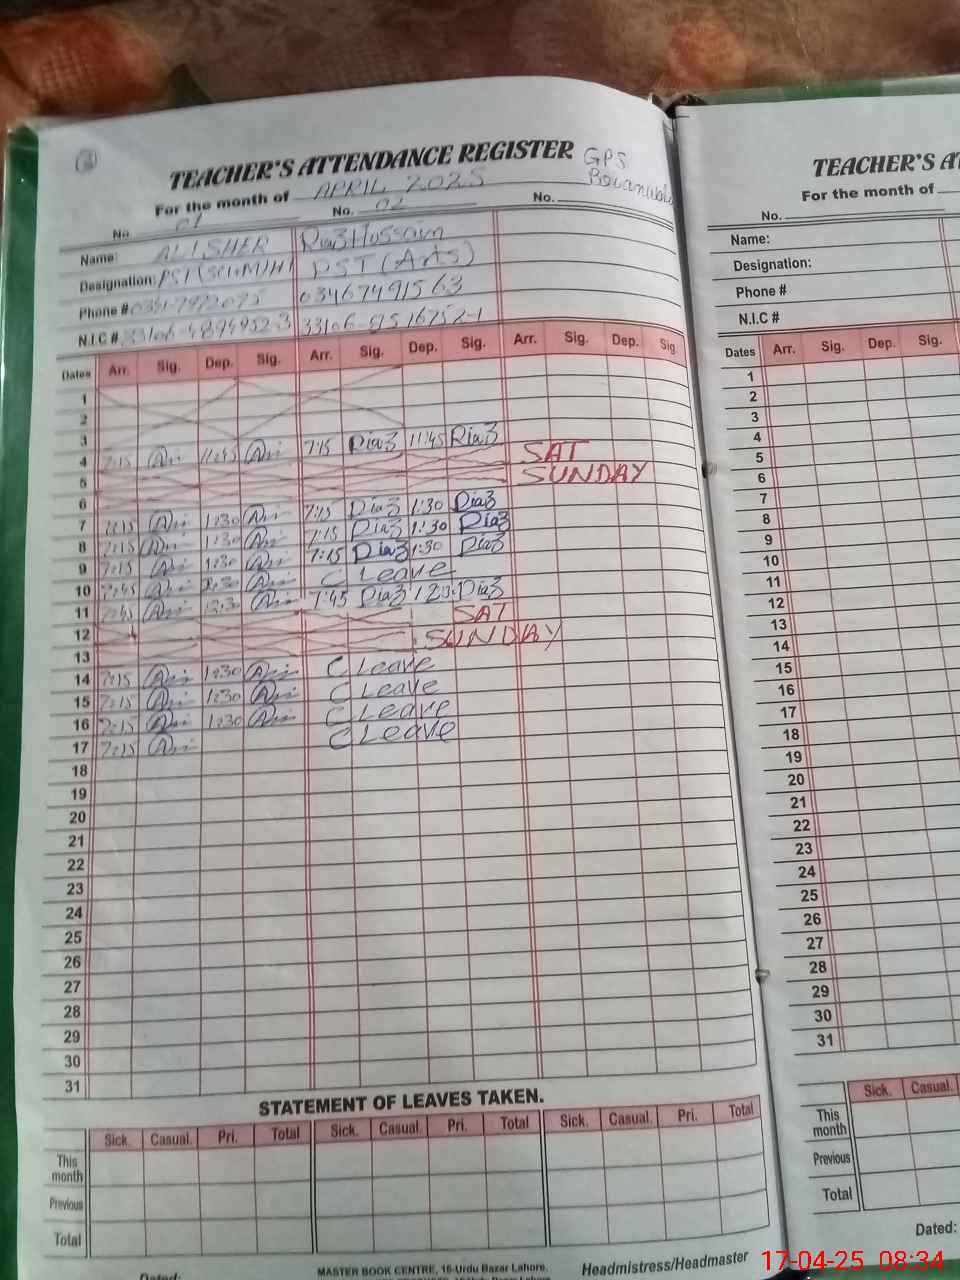 TEACHER'S ATTENDANCE REGISTER GPS
For the month of APRIL 2025
No. 01 No. 02 No.
Name: ALI SHER Riaz Hussain
Designation: PST (Arts)
Phone # 03467491563
N.I.C #
Dates Arr. Sig. Dep. Sig. Arr. Sig. Dep. Sig. Arr. Sig. Dep. Sig.
1
2
3
4 7:15 11:45 7:15 Riaz 11:45 Riaz
5 SAT
6 SUNDAY
7 7:15 1:30 7:15 Riaz 1:30 Riaz
8 7:15 1:30 7:15 Riaz 1:30 Riaz
9 7:15 1:30 7:15 Riaz 1:30 Riaz
10 7:45 C Leave
11 7:45 12:30 7:45 Riaz Riaz
12 SAT
13 SUNDAY
14 7:15 1:30 C Leave
15 7:15 1:30 C Leave
16 7:15 1:30 C Leave
17 7:15 C Leave
18
19
20
21
22
23
24
25
26
27
28
29
30
31
STATEMENT OF LEAVES TAKEN.
Sick. Casual. Pri. Total Sick. Casual. Pri. Total Sick. Casual. Pri. Total
This month
Previous
Total
Dated:
MASTER BOOK CENTRE, 16-Urdu Bazar Lahore.
Headmistress/Headmaster
TEACHER'S
For the month of
No.
Name:
Designation:
Phone #
N.I.C #
Dates Arr. Sig. Dep. Sig.
1
2
3
4
5
6
7
8
9
10
11
12
13
14
15
16
17
18
19
20
21
22
23
24
25
26
27
28
29
30
31
Sick. Casual.
This month
Previous
Total
Dated:
17-04-25 08:34